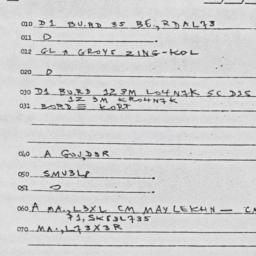 010 D1 BU.RD 35 BE.,RDAL73
011 D
012 GL A GROYS ZING-KOL
020 D
030 D1 BU.RD 1Z 3M LO4N7K SC D1S
1Z 3M KRO4N7K
031 BORD = KORT
040 A GOU,D3R
050 SMU3LP
051 O
060 A MA.,L3XL CM MAYLEKHN —
71,SK83L735
070 MA.,L73X3R